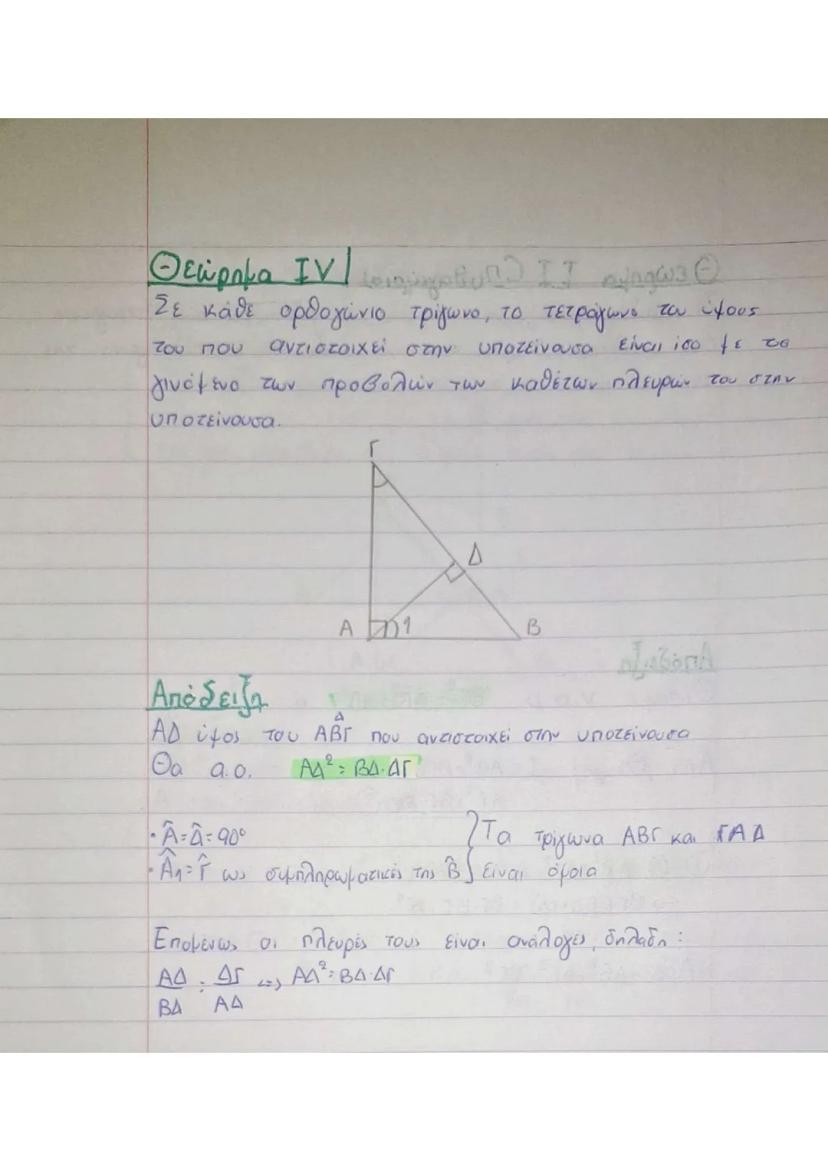 Θεώρημα IV
Σε κάθε ορθογώνιο τρίγωνο, το τετράγωνο του ύψους
του που αντιστοιχεί στην υποτείνουσα είναι ίσο με το
γινόμενο των προβολών των καθέτων πλευρών του στην
υποτείνουσα.
Γ
Δ
Α 1 Β
Απόδειξη
ΑΔ ύψος του ΑΒΓ που αντιστοιχεί στην υποτείνουσα
Θα α.ο. ΑΔ²=ΒΔ·ΔΓ
· Â=Δ̂=90° } Τα τρίγωνα ΑΒΓ και ΓΑΔ
· Â₁=Γ̂ ως συμπληρωματικές της Β̂ } είναι όμοια
Επομένως οι πλευρές τους είναι ανάλογες, δηλαδή:
ΑΔ/ΒΔ = ΔΓ/ΑΔ <=> ΑΔ²=ΒΔ·ΔΓ